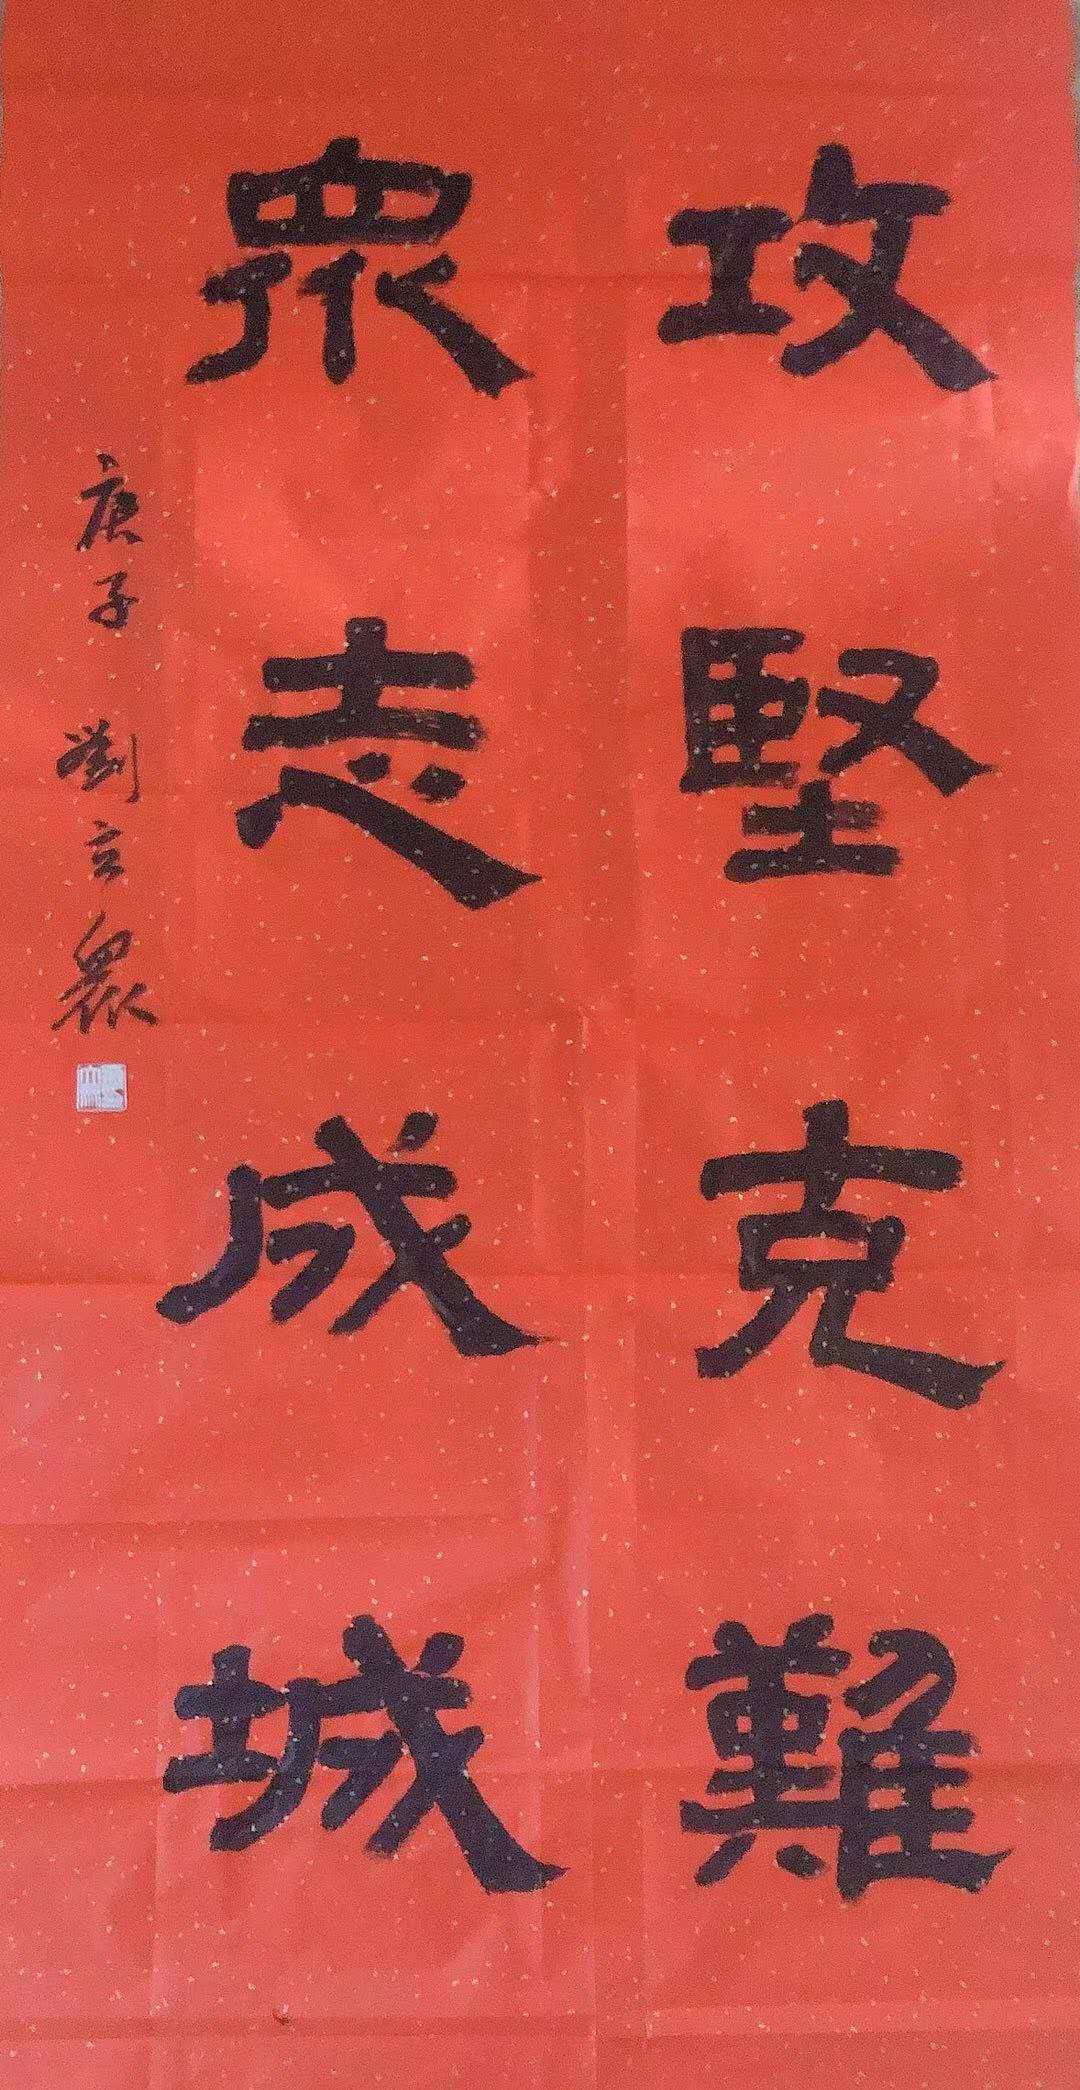 攻堅克難
眾志成城
庚子 劉立眾